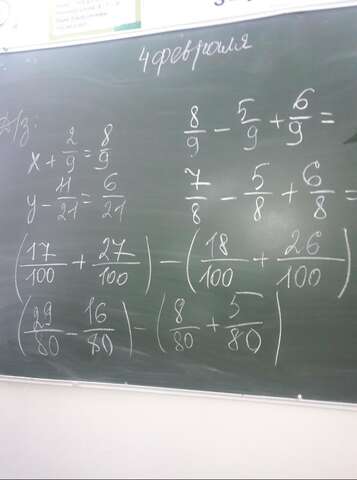 4 февраля
Д/з:
x + 2/9 = 8/9
y - 11/21 = 6/21
8/9 - 5/9 + 6/9 =
7/8 - 5/8 + 6/8 =
(17/100 + 27/100) - (18/100 + 26/100)
(29/80 - 16/80) - (8/80 + 5/80)